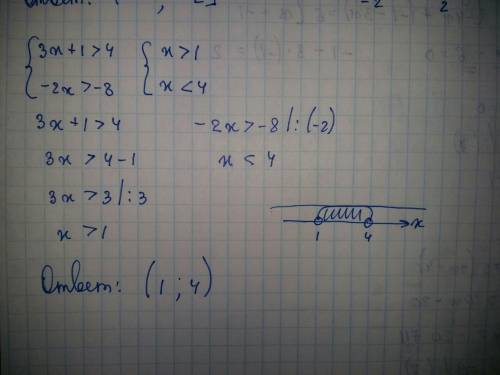 {3x+1>4 {x>1
-2x>-8 x<4
3x+1>4 -2x>-8 |:(-2)
3x>4-1 x<4
3x>3 |:3
x>1
1 4 x
Ответ: (1;4)